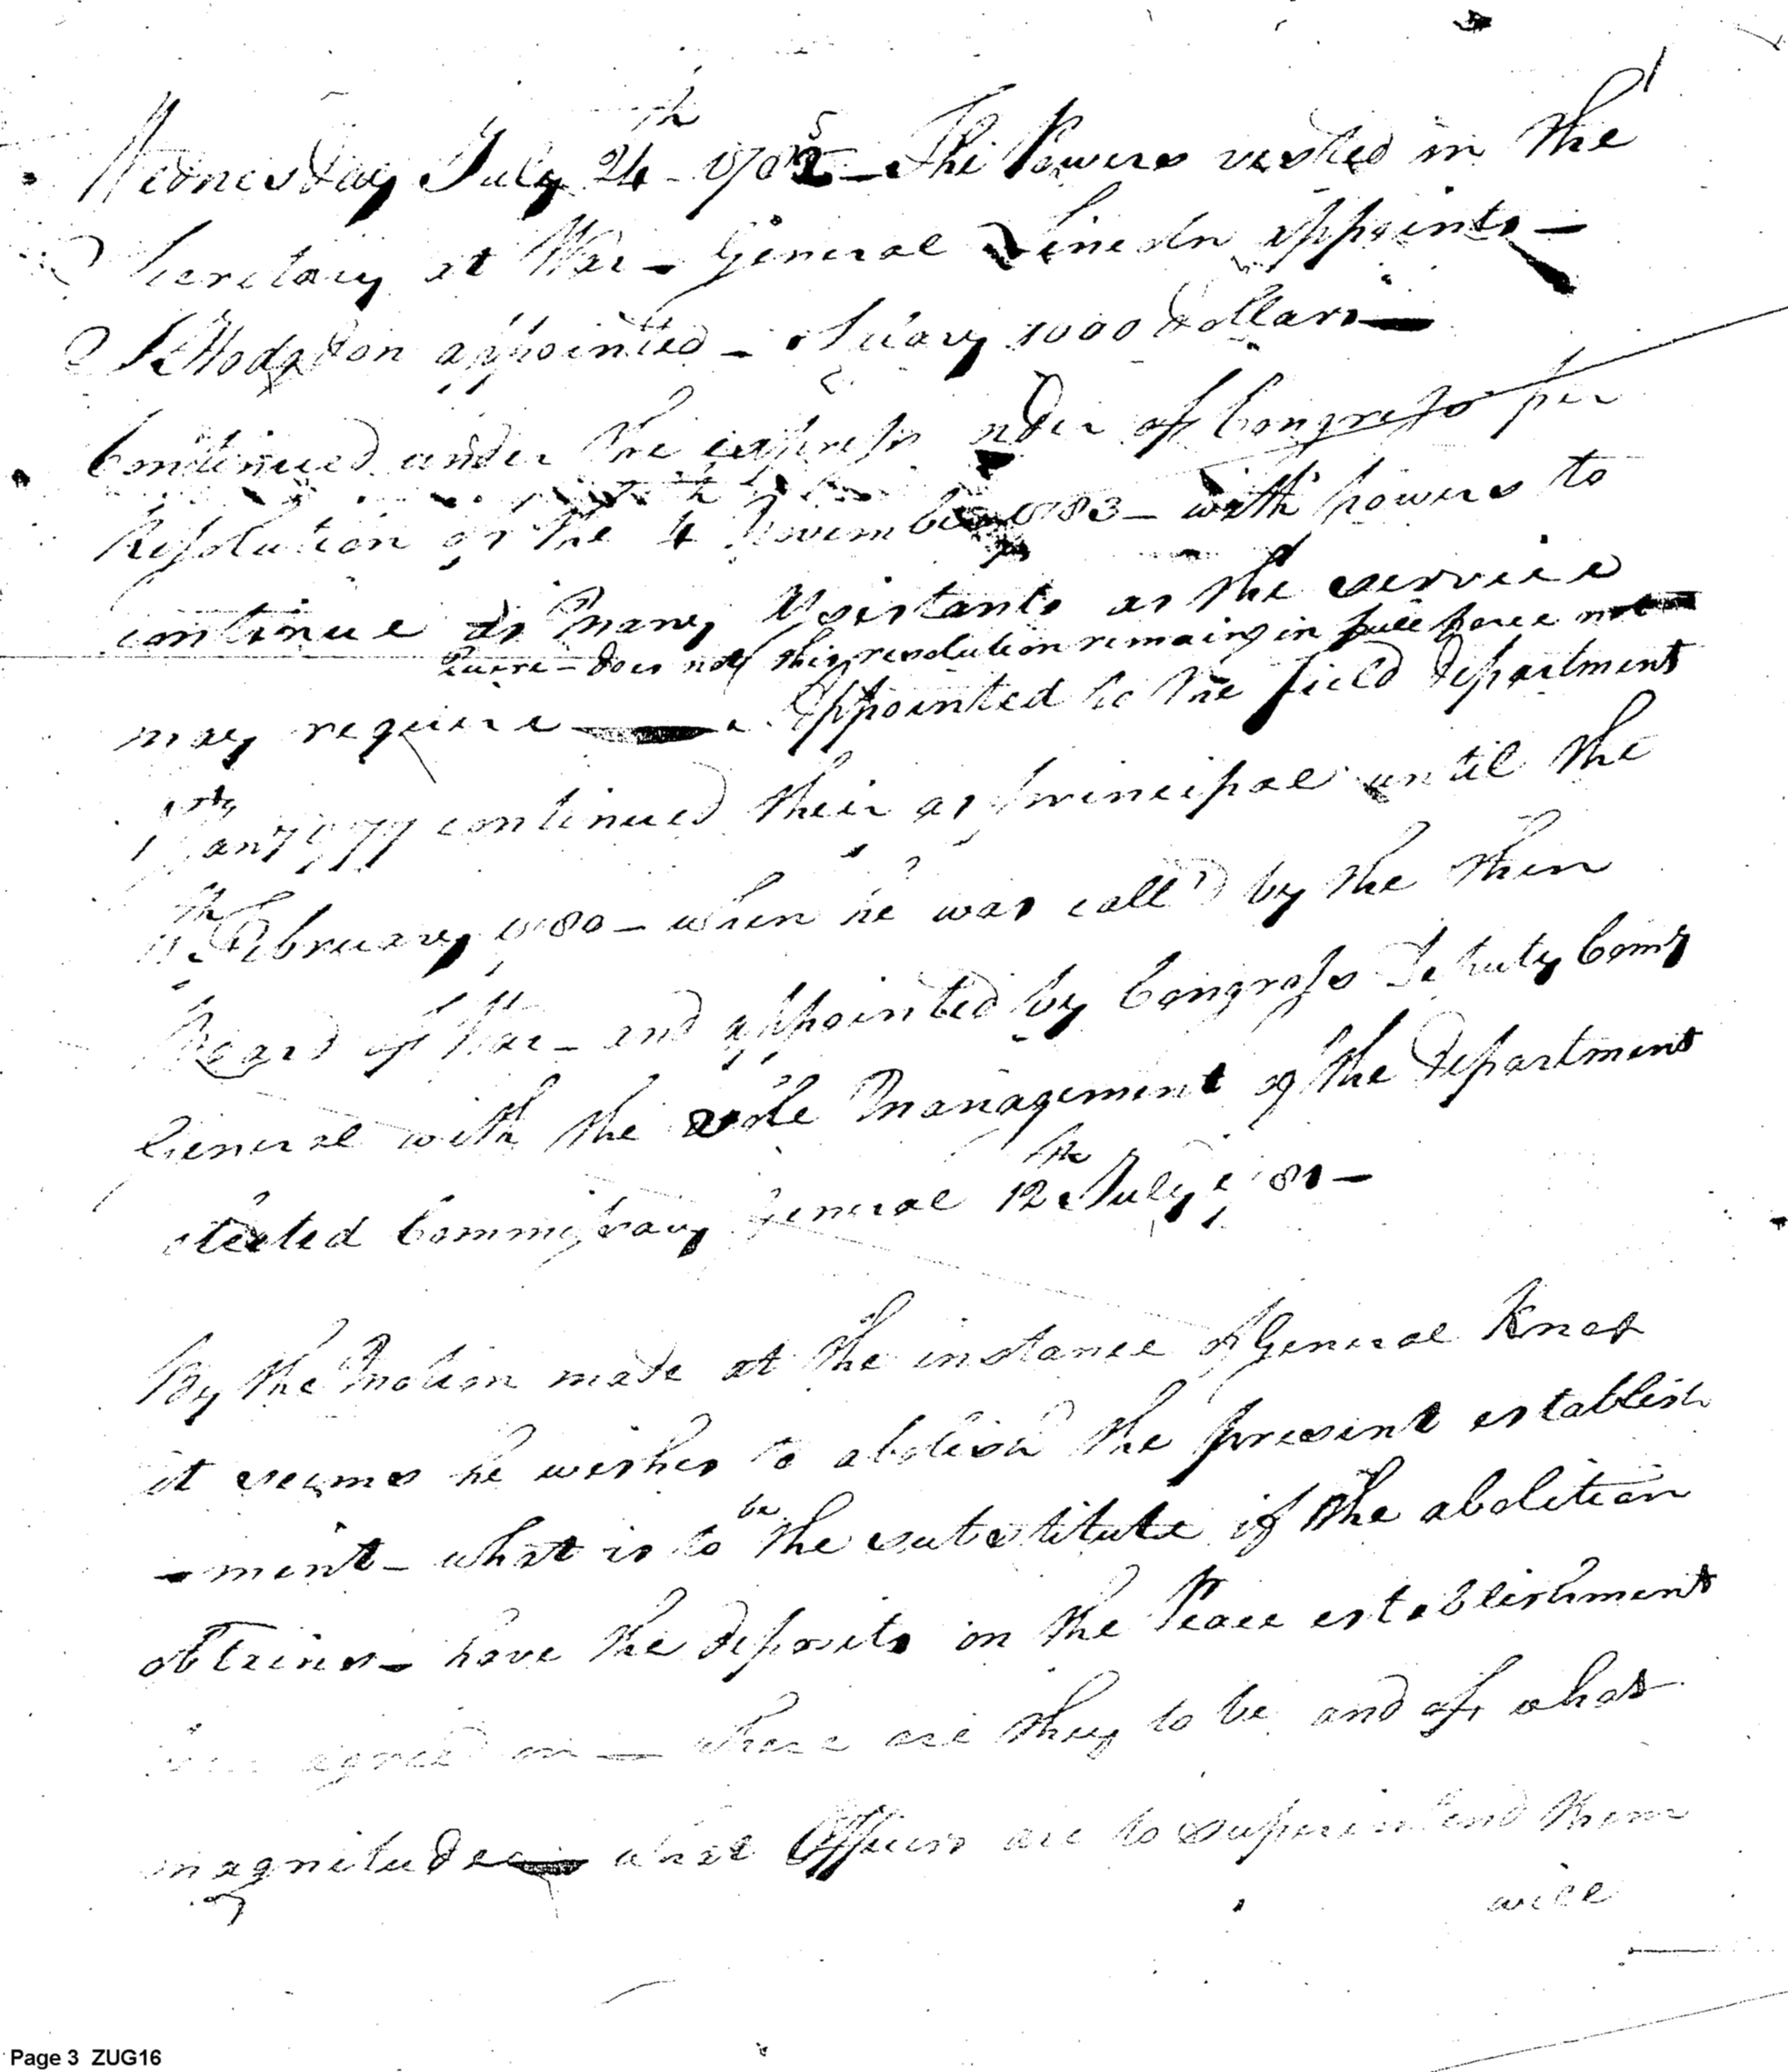 Wednesday July 24th 1785 — The Powers vested in the
Secretary at War — General Lincoln appoints —
S Hodgdon appointed — Salary 1000 dollars —
Continued under the express order of Congress per
Resolution of the 4th November 1783 — with powers to
continue as many Assistants as the service
Quere — does not this resolution remain in full force
may require — Appointed to the field department
1st Jany 1777 continued their as principal until the
11th February 1780 — when he was call'd by the then
Board of War — and appointed by Congress Deputy Comy
General with the sole Management of the Department
elected Commissary General 12th July 1781 —
By the Motion made at the instance of General Knox
it seems he wishes to abolish the present establish
-ment — what is to be the substitute if the abolition
obtains — have the deposits on the Peace establishment
been agreed on — where are they to be and of what
magnitude — what Officers are to superintend them
will
Page 3 ZUG16